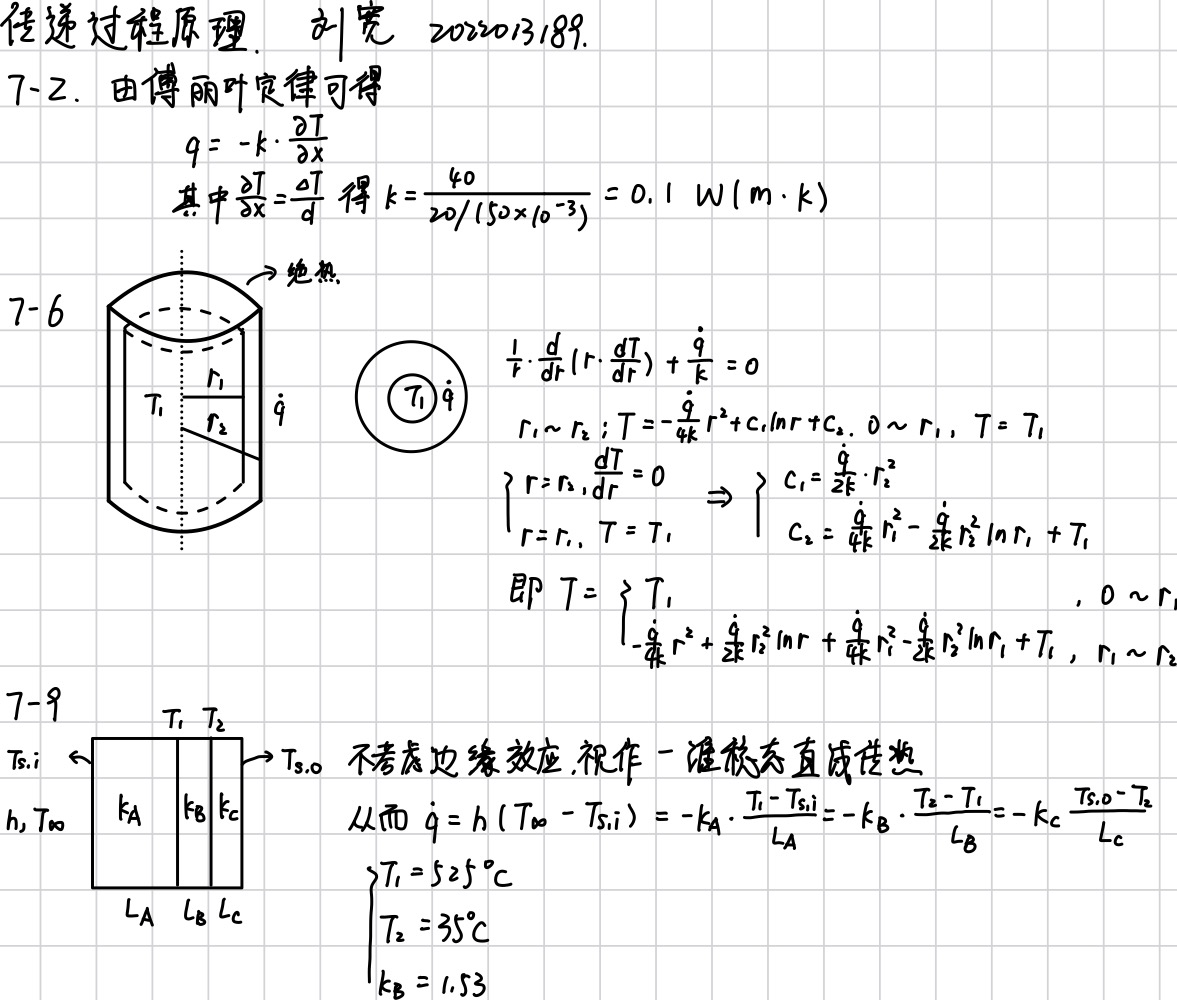 传递过程原理. 刘宽 2022013189.
7-2. 由傅丽叶定律可得
q = -k · ∂T/∂x
其中 ∂T/∂x = ΔT/d 得 k = 40 / (20/(50×10⁻³)) = 0.1 W(m·k)
7-6
→ 绝热
T₁ r₁ r₂ q̇
T₁ q̇
1/r · d/dr (r · dT/dr) + q̇/k = 0
r₁ ~ r₂ ; T = -q̇/4k r² + C₁lnr + C₂. 0 ~ r₁, T = T₁
{ r = r₂, dT/dr = 0 ⇒ { C₁ = q̇/2k · r₂²
r = r₁, T = T₁ C₂ = q̇/4k r₁² - q̇/2k r₂² ln r₁ + T₁
即 T = { T₁ , 0 ~ r₁
-q̇/4k r² + q̇/2k r₂² ln r + q̇/4k r₁² - q̇/2k r₂² ln r₁ + T₁, r₁ ~ r₂
7-9
T₁ T₂
Ts.i ← → Ts.o
h, T∞ kA kB kC
LA LB LC
不考虑边缘效应,视作一维稳态直流传热
从而 q̇ = h (T∞ - Ts,i) = -kA · (T₁ - Ts,i)/LA = -kB · (T₂ - T₁)/LB = -kC (Ts.o - T₂)/LC
{ T₁ = 525°C
T₂ = 35°C
kB = 1.53